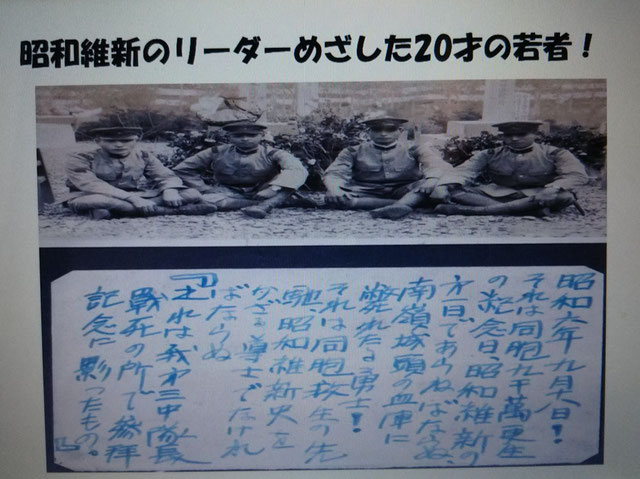 昭和維新のリーダーめざした20才の若者！
昭和六年九月十八日！
それは同胞九千萬更生
の記念日、昭和維新の
才一日であらねばならぬ、
南嶺城頭の血庫に
斃れたる勇士！
それは同胞救生の先
駆、昭和維新史を
かざる導士でなけれ
ばならぬ
『之れは我才三中隊長
戰死の所で參拝
記念に影つたもの。』